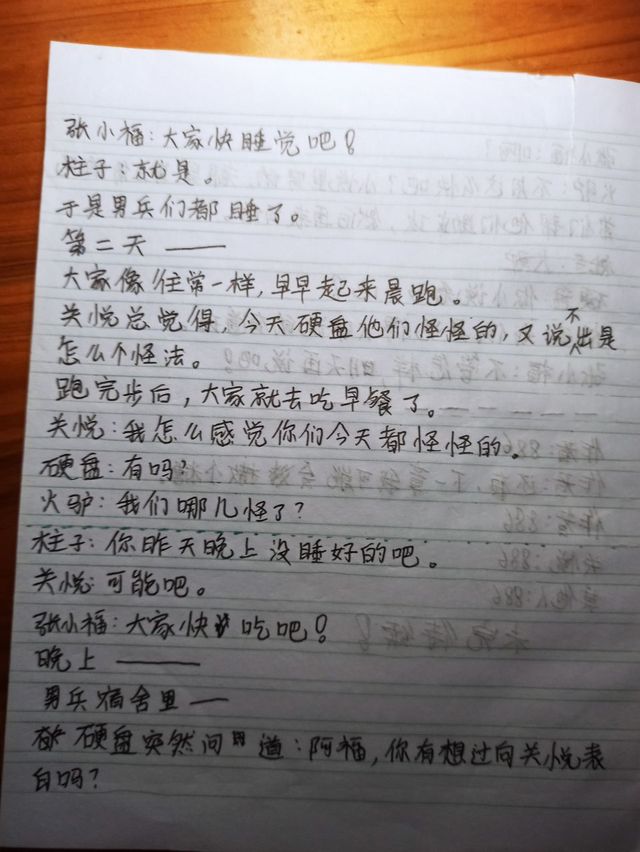 张小福:大家快睡觉吧!
柱子:就是。
于是男兵们都睡了。
第二天 ——
大家像往常一样,早早起来晨跑。
关悦总觉得,今天硬盘他们怪怪的,又说不出是
怎么个怪法。
跑完步后,大家就去吃早餐了。—————
关悦:我怎么感觉你们今天都怪怪的。
硬盘:有吗?
火驴:我们哪儿怪了?
柱子:你昨天晚上没睡好的吧。
关悦:可能吧。
张小福:大家快吃吧!
晚上 ———
男兵宿舍里 ——
硬盘突然问道:阿福,你有想过向关悦表
白吗?